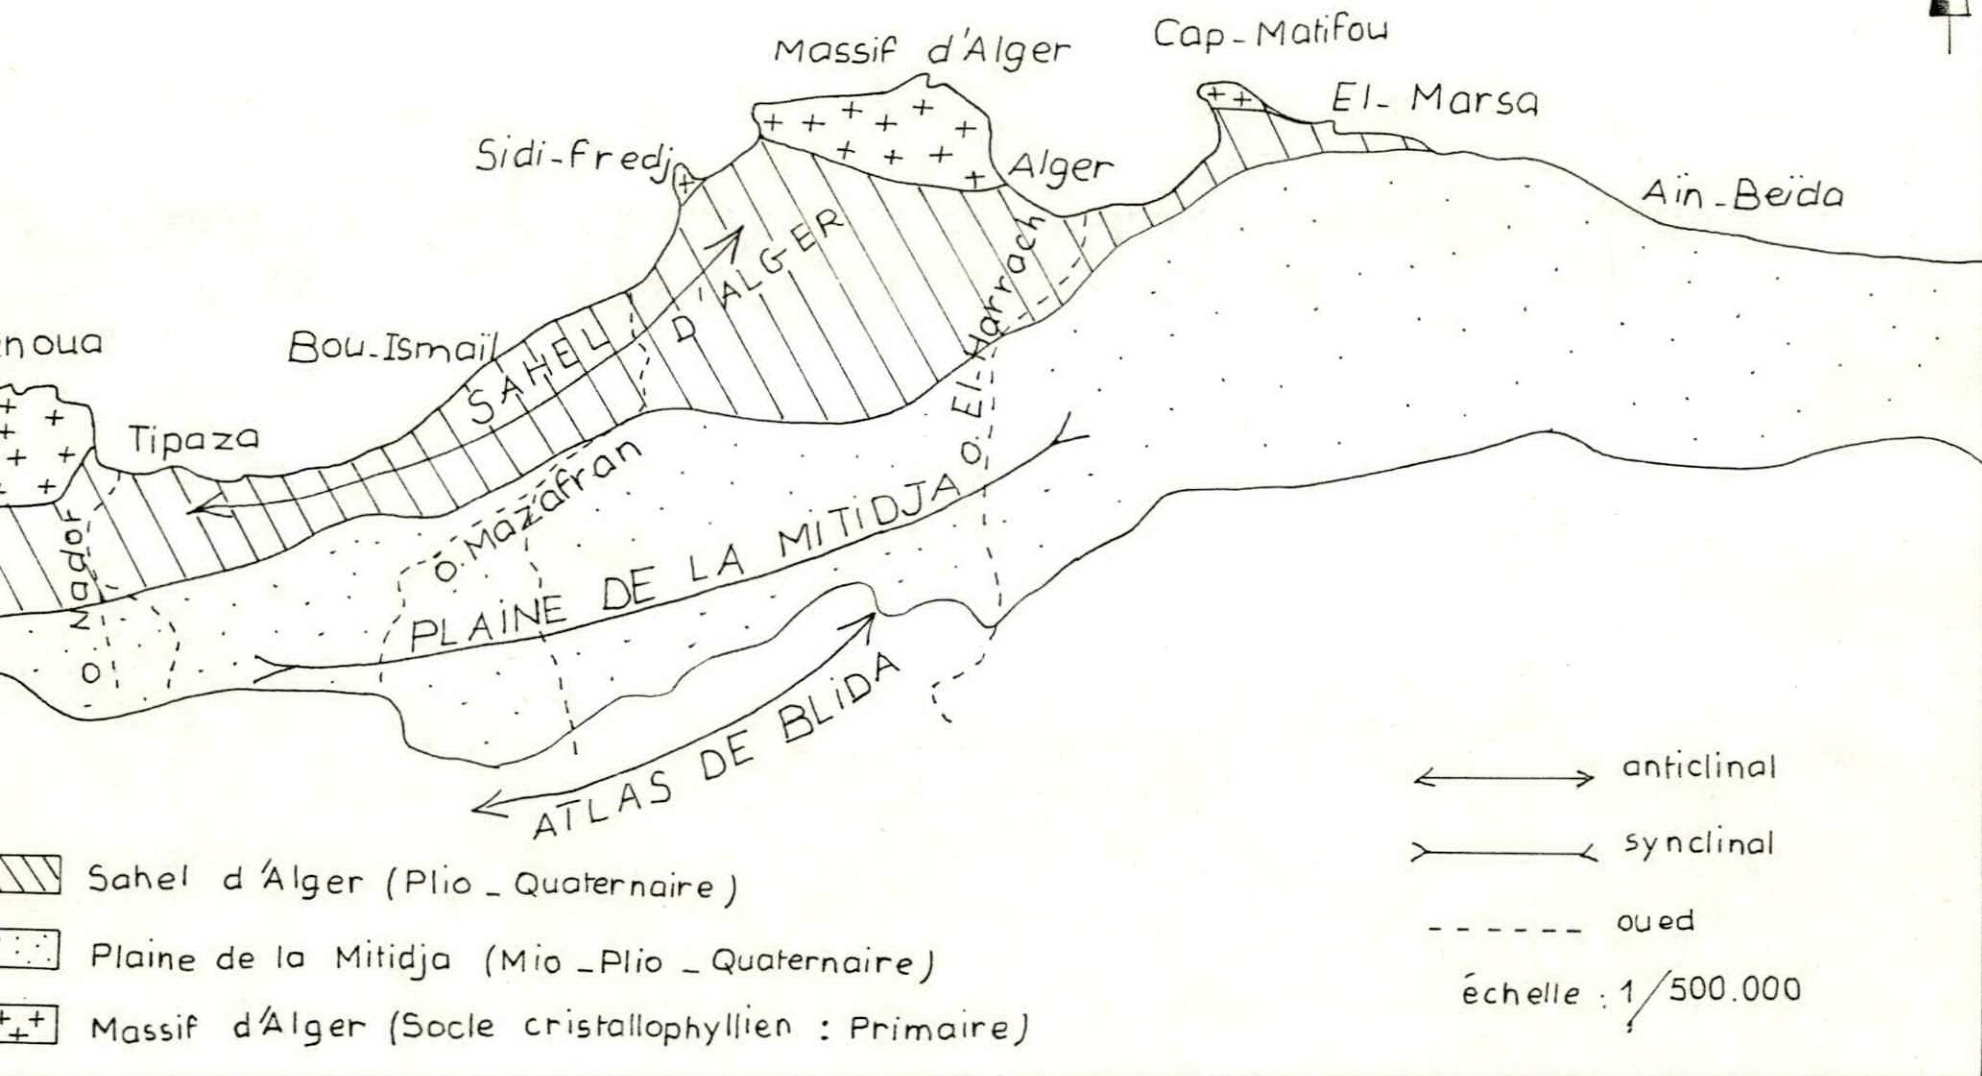 Massif d'Alger
Cap-Matifou
El-Marsa
Sidi-Fredj
Alger
Aïn-Beïda
noua
Bou-Ismaïl
SAHEL D'ALGER
O. El-Harrach
Tipaza
O. Nador
O. Mazafran
PLAINE DE LA MITIDJA
ATLAS DE BLIDA
anticlinal
synclinal
oued
échelle : 1/500.000
Sahel d'Alger (Plio-Quaternaire)
Plaine de la Mitidja (Mio-Plio-Quaternaire)
Massif d'Alger (Socle cristallophyllien : Primaire)